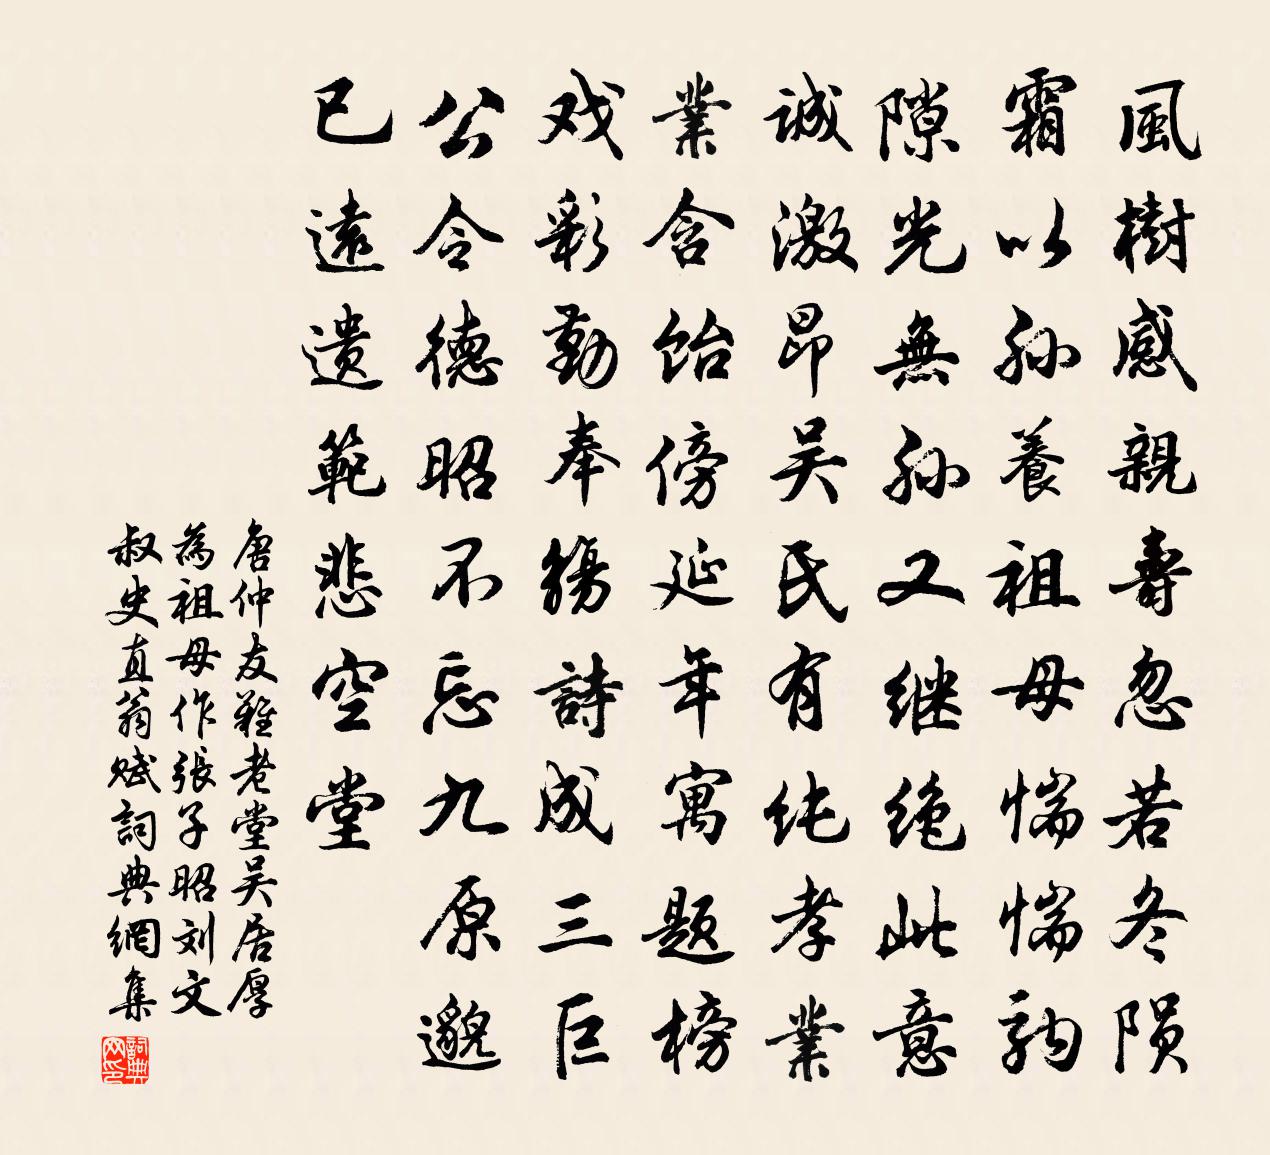 風樹感親壽忽若冬隕
霜以孙養祖母惴惴駒
隙光無孙又继绝此意
诚激昂吴民有纯孝業
業含饴傍延年寓题榜
戏彩勤奉觞詩成三巨
公令德昭不忘九原邈
已遠遗範悲空堂
唐仲友難老堂吴居厚
為祖母作張子昭刘文
叔史直翁赋詞典網集
詞典